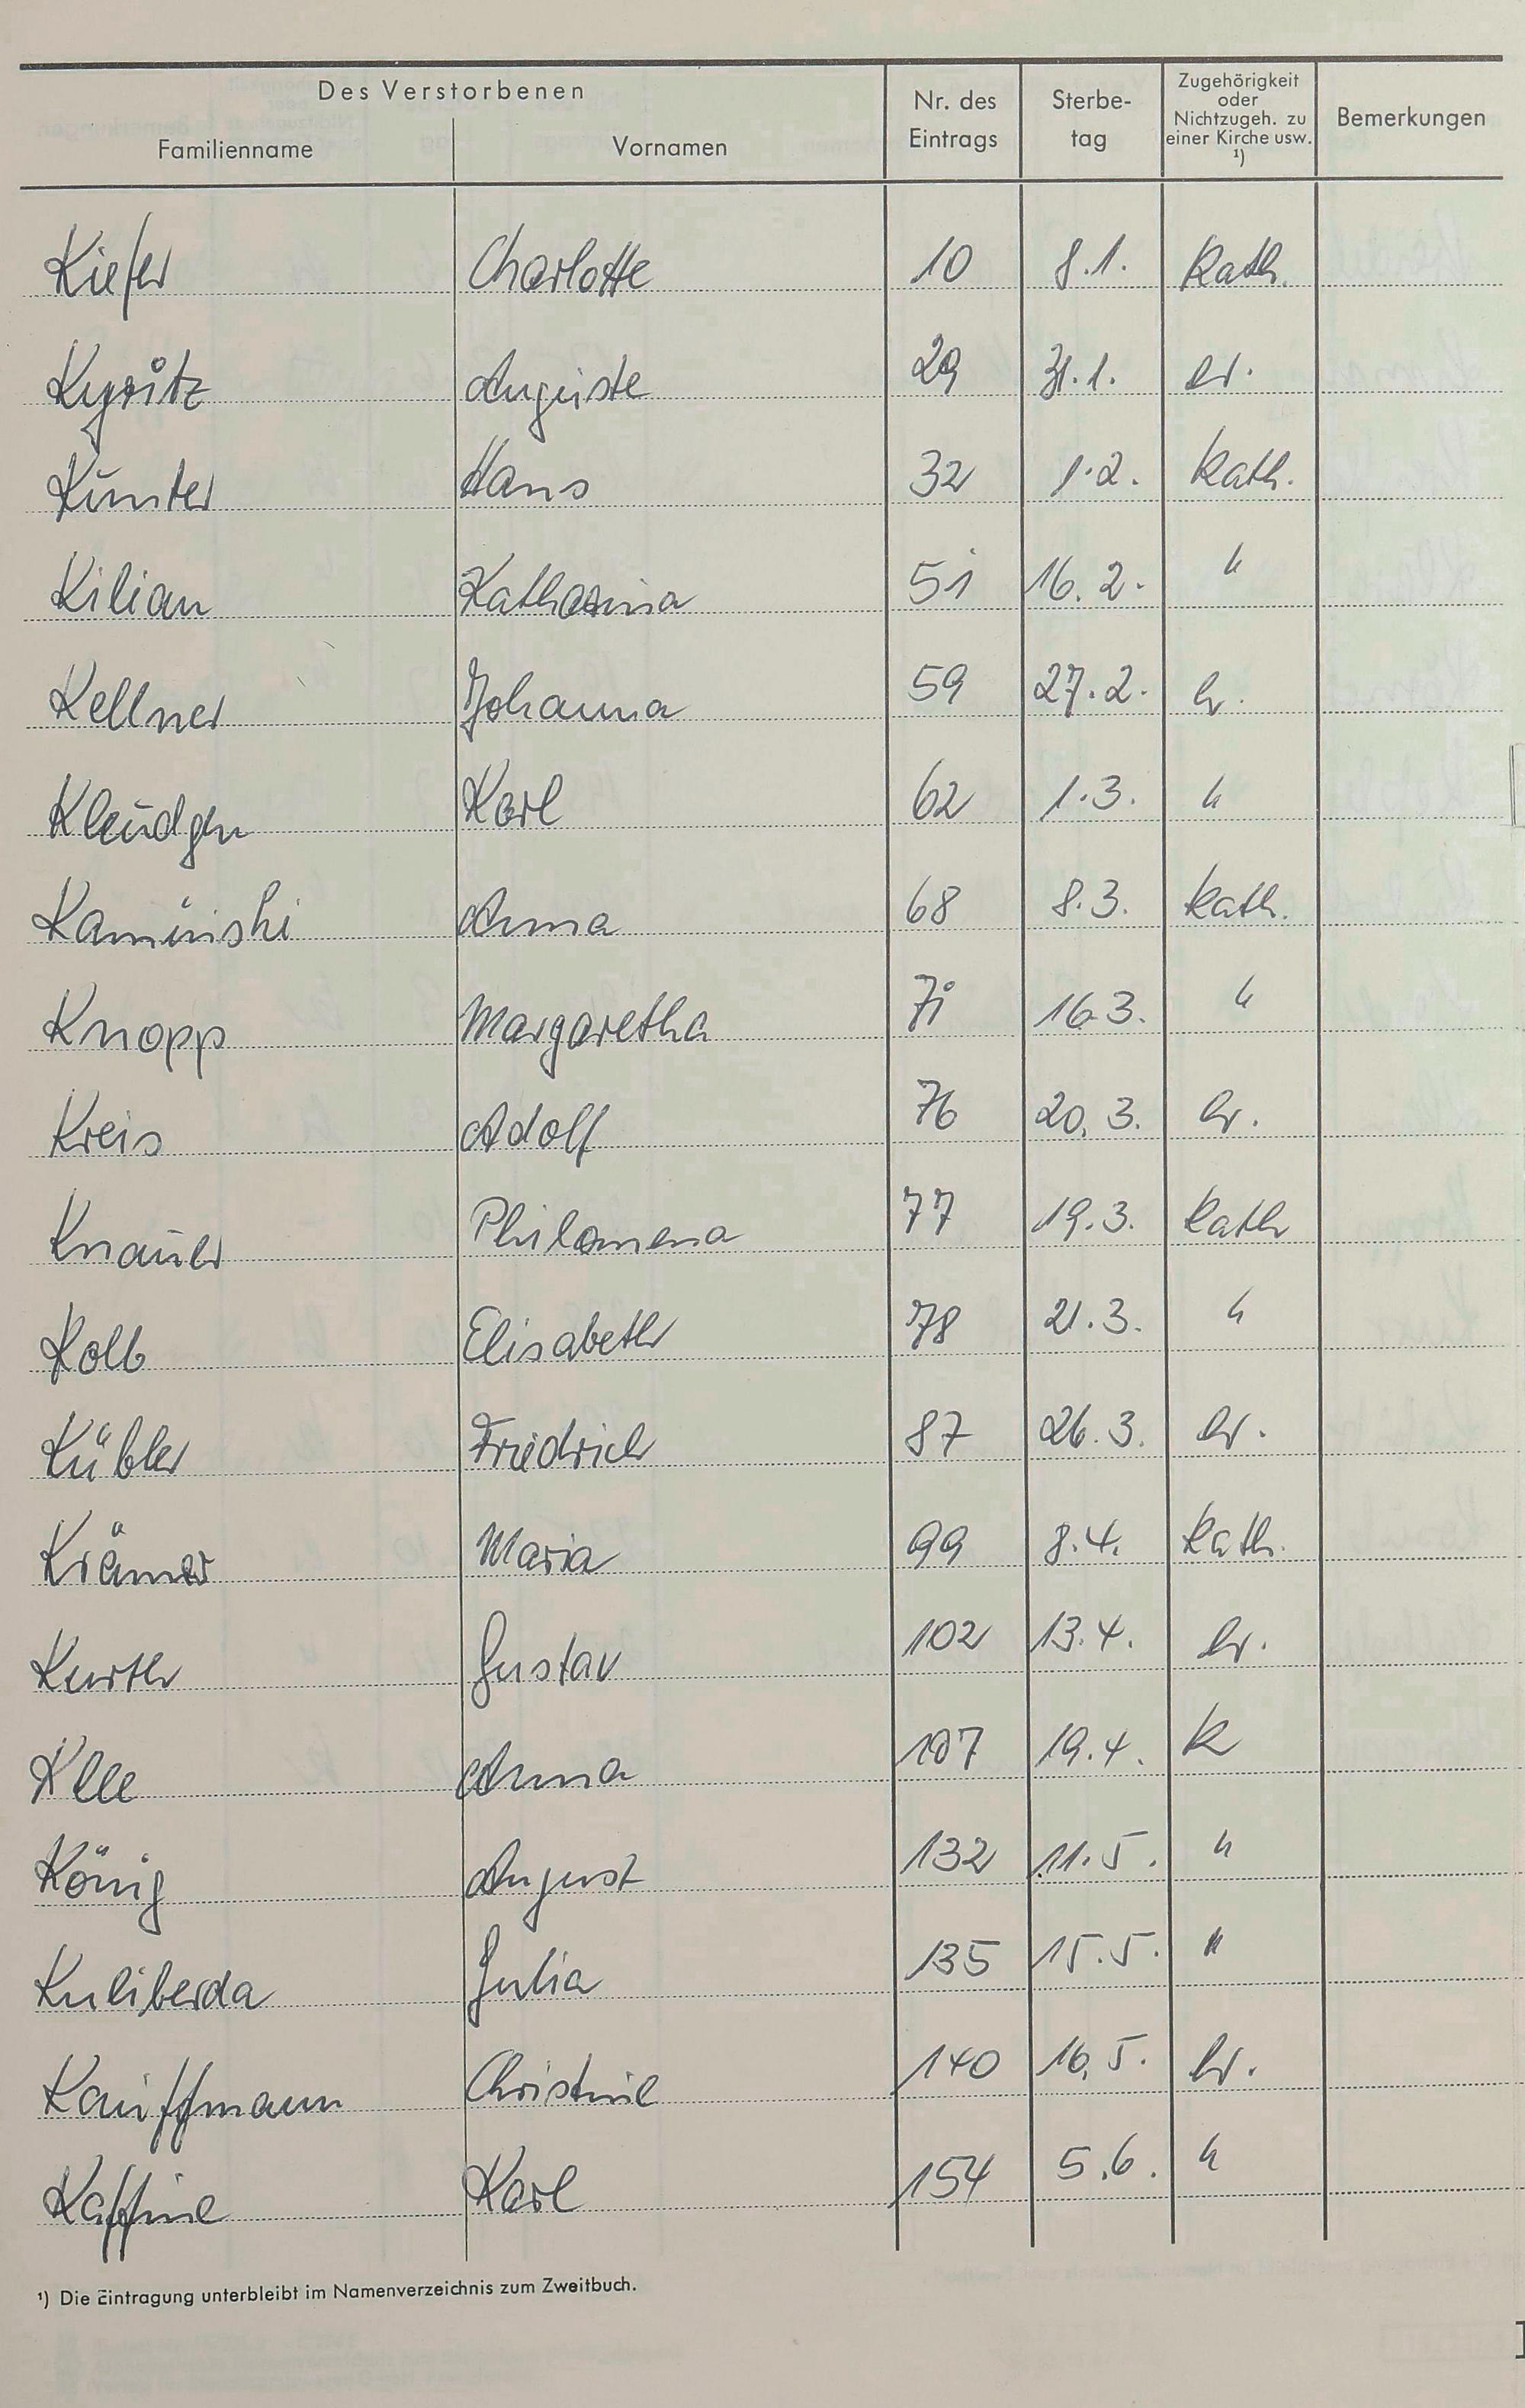 Des Verstorbenen
Familienname Vornamen Nr. des Eintrags Sterbe-tag Zugehörigkeit oder Nichtzugeh. zu einer Kirche usw. ¹) Bemerkungen
Kiefer Charlotte 10 8.1. kath.
Kyritz Auguste 29 31.1. ev.
Künter Hans 32 1.2. kath.
Kilian Katharina 51 16.2. "
Kellner Johanna 59 27.2. ev.
Kleudgen Karl 62 1.3. "
Kaminski Anna 68 8.3. kath.
Knopp Margaretha 71 16.3. "
Kreis Adolf 76 20.3. ev.
Knauer Philomena 77 19.3. kath
Kolb Elisabeth 78 21.3. "
Kübler Friedrich 87 26.3. ev.
Krämer Maria 99 8.4. kath.
Kurth Gustav 102 13.4. ev.
Klee Anna 107 19.4. k
König August 132 11.5. "
Kuliberda Julia 135 15.5. "
Kauffmann Christine 140 16.5. ev.
Kaffine Karl 154 5.6. "
¹) Die Eintragung unterbleibt im Namenverzeichnis zum Zweitbuch.